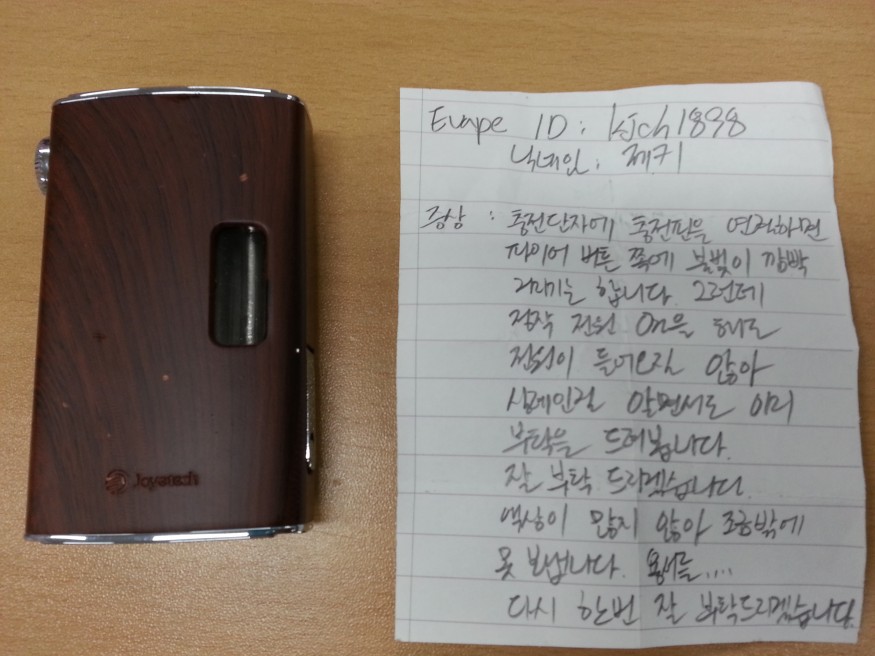 Joyetech
Evape ID : kjch1898
닉네임 : 제키
증상 : 충전단자에 충전핀을 연결하면
파이어 버튼 쪽에 불빛이 깜빡
거리기는 합니다. 그런데
정작 전원 On을 해도
전원이 들어오진 않아
실례인걸 알면서도 이리
부탁을 드려봅니다.
잘 부탁 드리겠습니다.
액상이 많지 않아 조금밖에
못 보냅니다. ....
다시 한번 잘 부탁드리겠습니다.